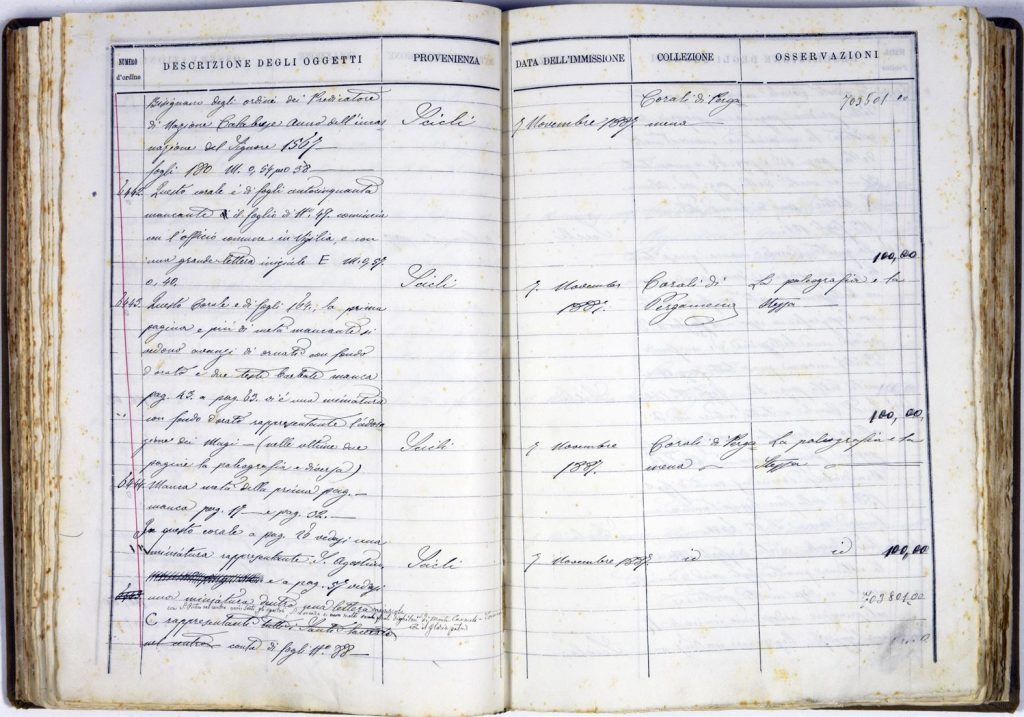 NUMERO d'ordine DESCRIZIONE DEGLI OGGETTI PROVENIENZA DATA DELL'IMMISSIONE COLLEZIONE OSSERVAZIONI
Bisignano degli ordini dei Predicatore Corali di Perga 703501 00
di Nazione Calabrese anno dell'incar Scicli 7 Novembre 1887. mena
nazione del Signore 1567
fogli 180 M. 0,54 per 0,38
6442. Questo corale è di fogli centocinquanta
mancante è il foglio di No. 49. comincia
con l'officio comune in Vigilia, e con
una grande lettera iniziale E M. 0,57. 100,00
0,40. Scicli 7. Novembre Corali di La paleografia e la
6443. Questo Corale e di fogli 164; la prima 1887. Pergamena stessa
pagina e più di metà mancante si
vedono avanzi di ornato con fondo
dorato e due teste
manca
pag. 43. a pag. 63. vi è una miniatura
con fondo dorato rappresentante l'ado 100,00,
zione dei Magi - (nelle ultime due Scicli 7 Novembre Corali di Perga La paleografia e la
pagine la paleografia e diversa) 1887. mena stessa
6444. Manca metà della prima pag.
manca pag. 17 - e pag. 32.
In questo corale a pag. 26 vedesi una
miniatura rappresentante S. Agostino Scicli 7 Novembre 1887. id id 100,00
e a pag. 57 vedesi
una miniatura dentro una lettera 703801.00
C rappresentante tutti i Santi
nel centro conta di fogli No. 88